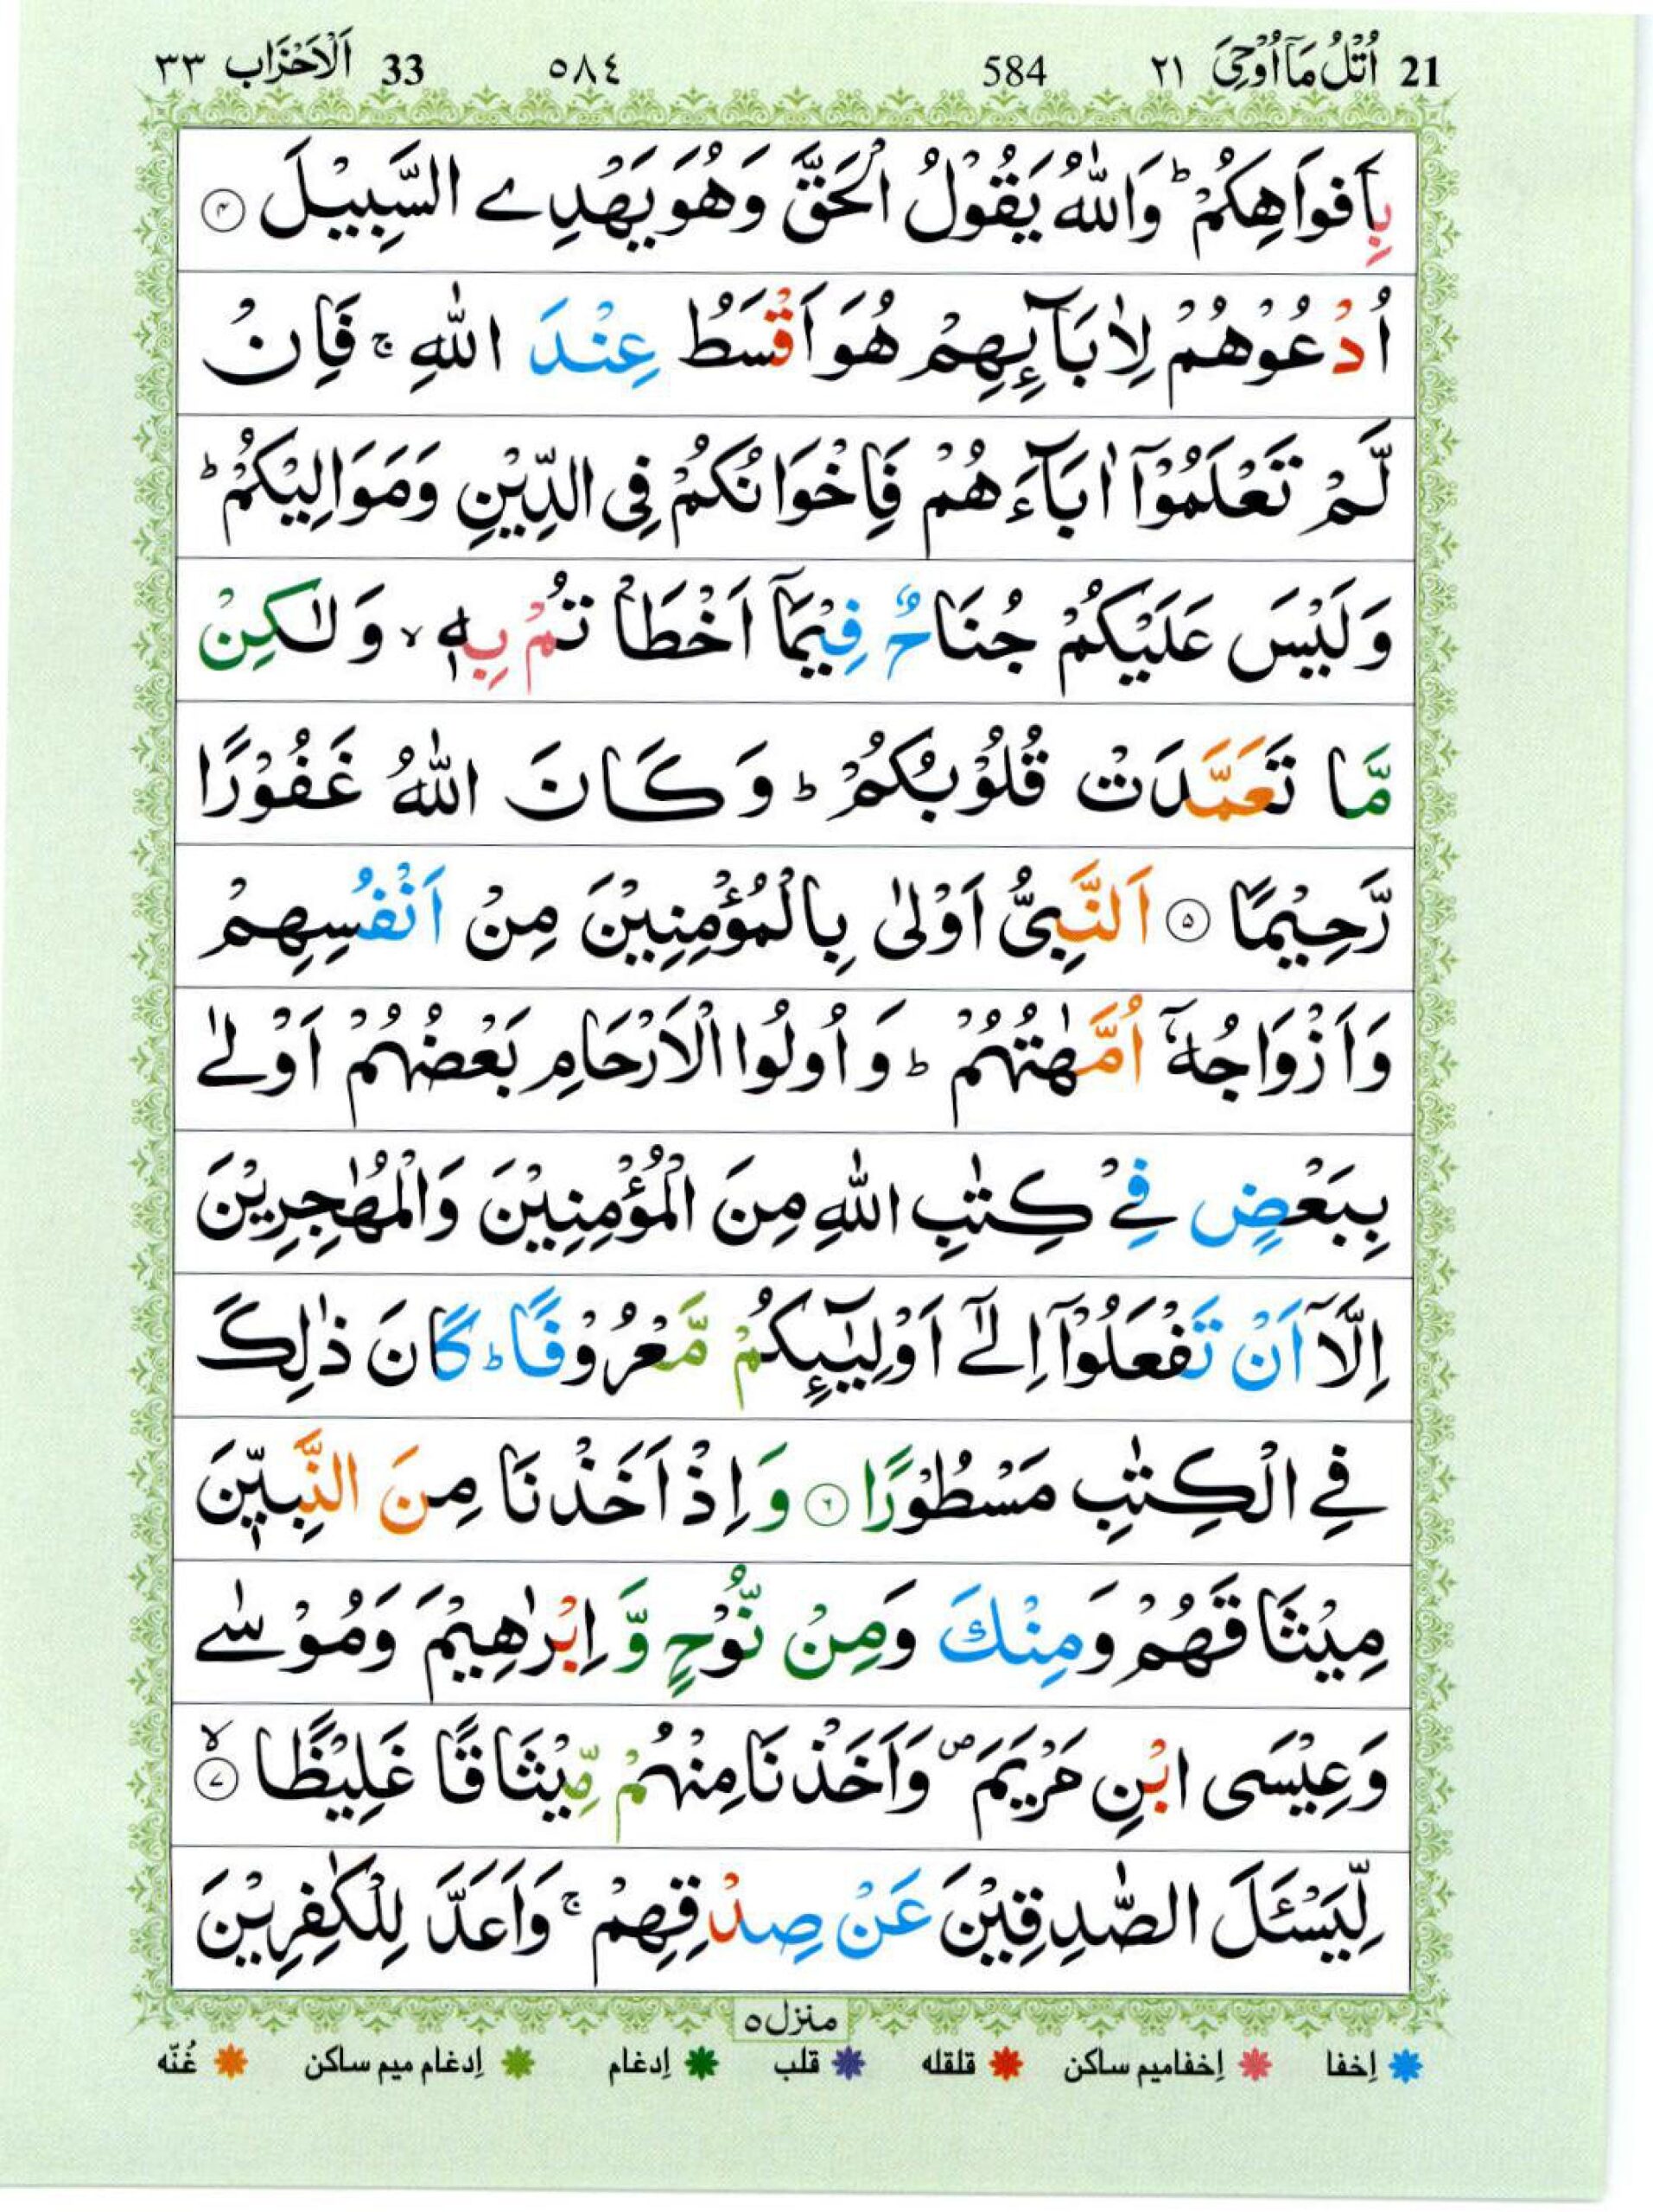 21 اُتْلُ مَاۤ اُوْحِیَ ٢١ 584 ٥٨٤ 33 اَلْاَحْزَاب ٣٣
بِاَفْوَاهِكُمْ ؕ وَاللّٰهُ یَقُوْلُ الْحَقَّ وَهُوَ یَهْدِی السَّبِیْلَ ۝۴
اُدْعُوْهُمْ لِاٰبَآئِهِمْ هُوَ اَقْسَطُ عِنْدَ اللّٰهِ ۚ فَاِنْ
لَّمْ تَعْلَمُوْۤا اٰبَآءَهُمْ فَاِخْوَانُكُمْ فِی الدِّیْنِ وَمَوَالِیْكُمْ ؕ
وَلَیْسَ عَلَیْكُمْ جُنَاحٌ فِیْمَاۤ اَخْطَاْتُمْ بِهٖ ۙ وَلٰكِنْ
مَّا تَعَمَّدَتْ قُلُوْبُكُمْ ؕ وَكَانَ اللّٰهُ غَفُوْرًا
رَّحِیْمًا ۝۵ اَلنَّبِیُّ اَوْلٰی بِالْمُؤْمِنِیْنَ مِنْ اَنْفُسِهِمْ
وَاَزْوَاجُهٗۤ اُمَّهٰتُهُمْ ؕ وَاُولُوا الْاَرْحَامِ بَعْضُهُمْ اَوْلٰی
بِبَعْضٍ فِیْ كِتٰبِ اللّٰهِ مِنَ الْمُؤْمِنِیْنَ وَالْمُهٰجِرِیْنَ
اِلَّاۤ اَنْ تَفْعَلُوْۤا اِلٰۤی اَوْلِیٰٓئِكُمْ مَّعْرُوْفًا ؕ كَانَ ذٰلِكَ
فِی الْكِتٰبِ مَسْطُوْرًا ۝۶ وَاِذْ اَخَذْنَا مِنَ النَّبِیّٖنَ
مِیْثَاقَهُمْ وَمِنْكَ وَمِنْ نُّوْحٍ وَّاِبْرٰهِیْمَ وَمُوْسٰی
وَعِیْسَی ابْنِ مَرْیَمَ ۪ وَاَخَذْنَا مِنْهُمْ مِّیْثَاقًا غَلِیْظًا ۝۷ۙ
لِّیَسْـَٔلَ الصّٰدِقِیْنَ عَنْ صِدْقِهِمْ ۚ وَاَعَدَّ لِلْكٰفِرِیْنَ
منزل ٥
اِخفا اِخفامیم ساکن قلقله قلب اِدغام اِدغام میم ساکن غُنّه